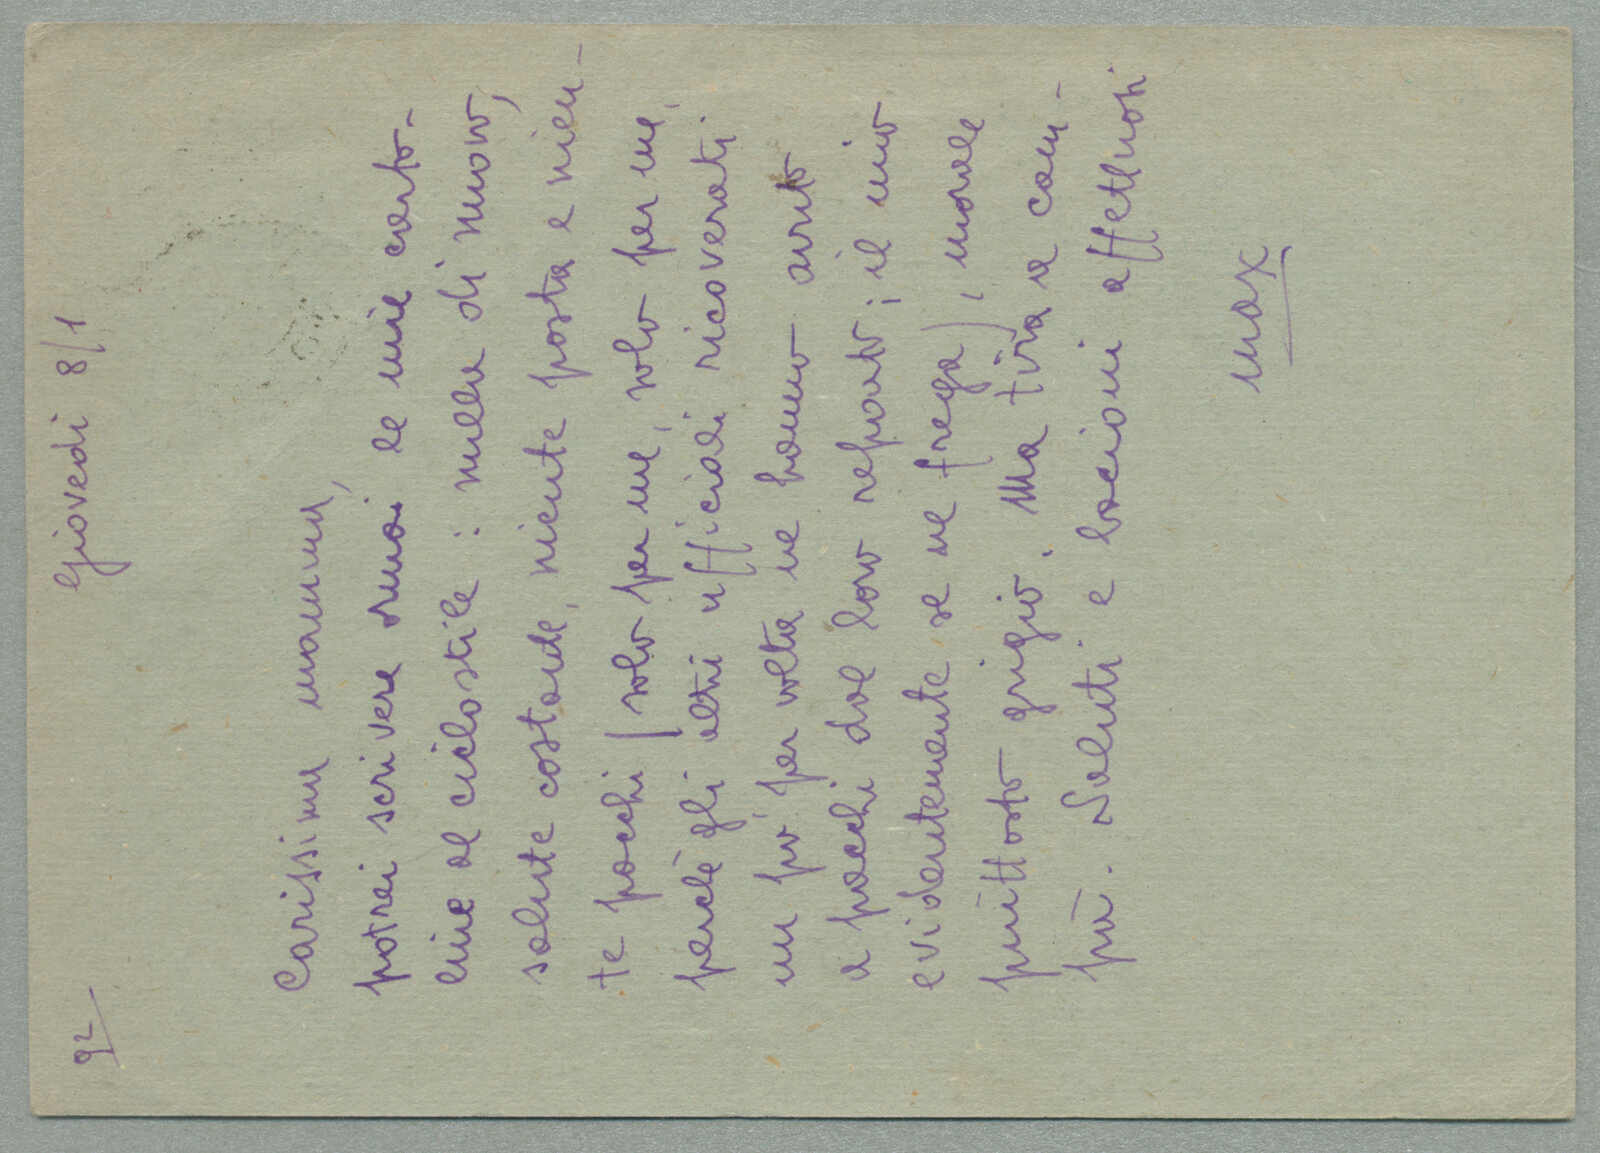 92
Giovedì 8/1
Carissima mamma,
potrei scrivere ormai le mie carto-
line al ciclostile : nulla di nuovo,
salute costante, niente posta e nien-
te pacchi (solo per me, solo per me,
perchè gli altri ufficiali ricoverati
un po' per volta ne hanno avuto
a pacchi dal loro reparto; il mio
evidentemente se ne frega), morale
piuttosto grigio. Ma tira a cam-
pà. Saluti e bacioni affettuosi
Max